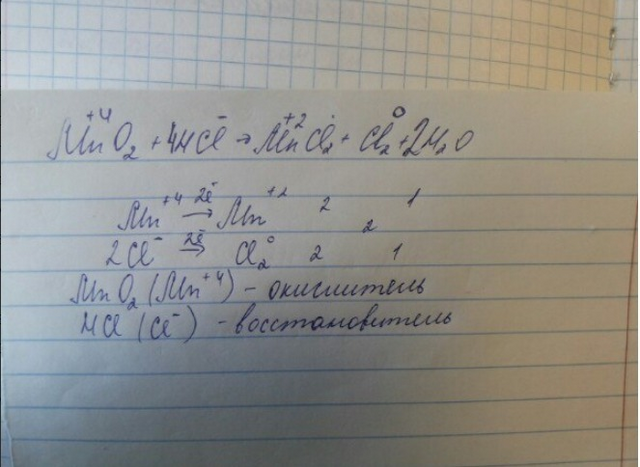 Mn⁺⁴O₂ + 4HCl⁻ → Mn⁺²Cl₂ + Cl₂⁰ + 2H₂O
Mn⁺⁴ 2ē→ Mn⁺² 2 1
2
2Cl⁻ 2ē→ Cl₂⁰ 2 1
MnO₂ (Mn⁺⁴) - окислитель
HCl (Cl⁻) - восстановитель